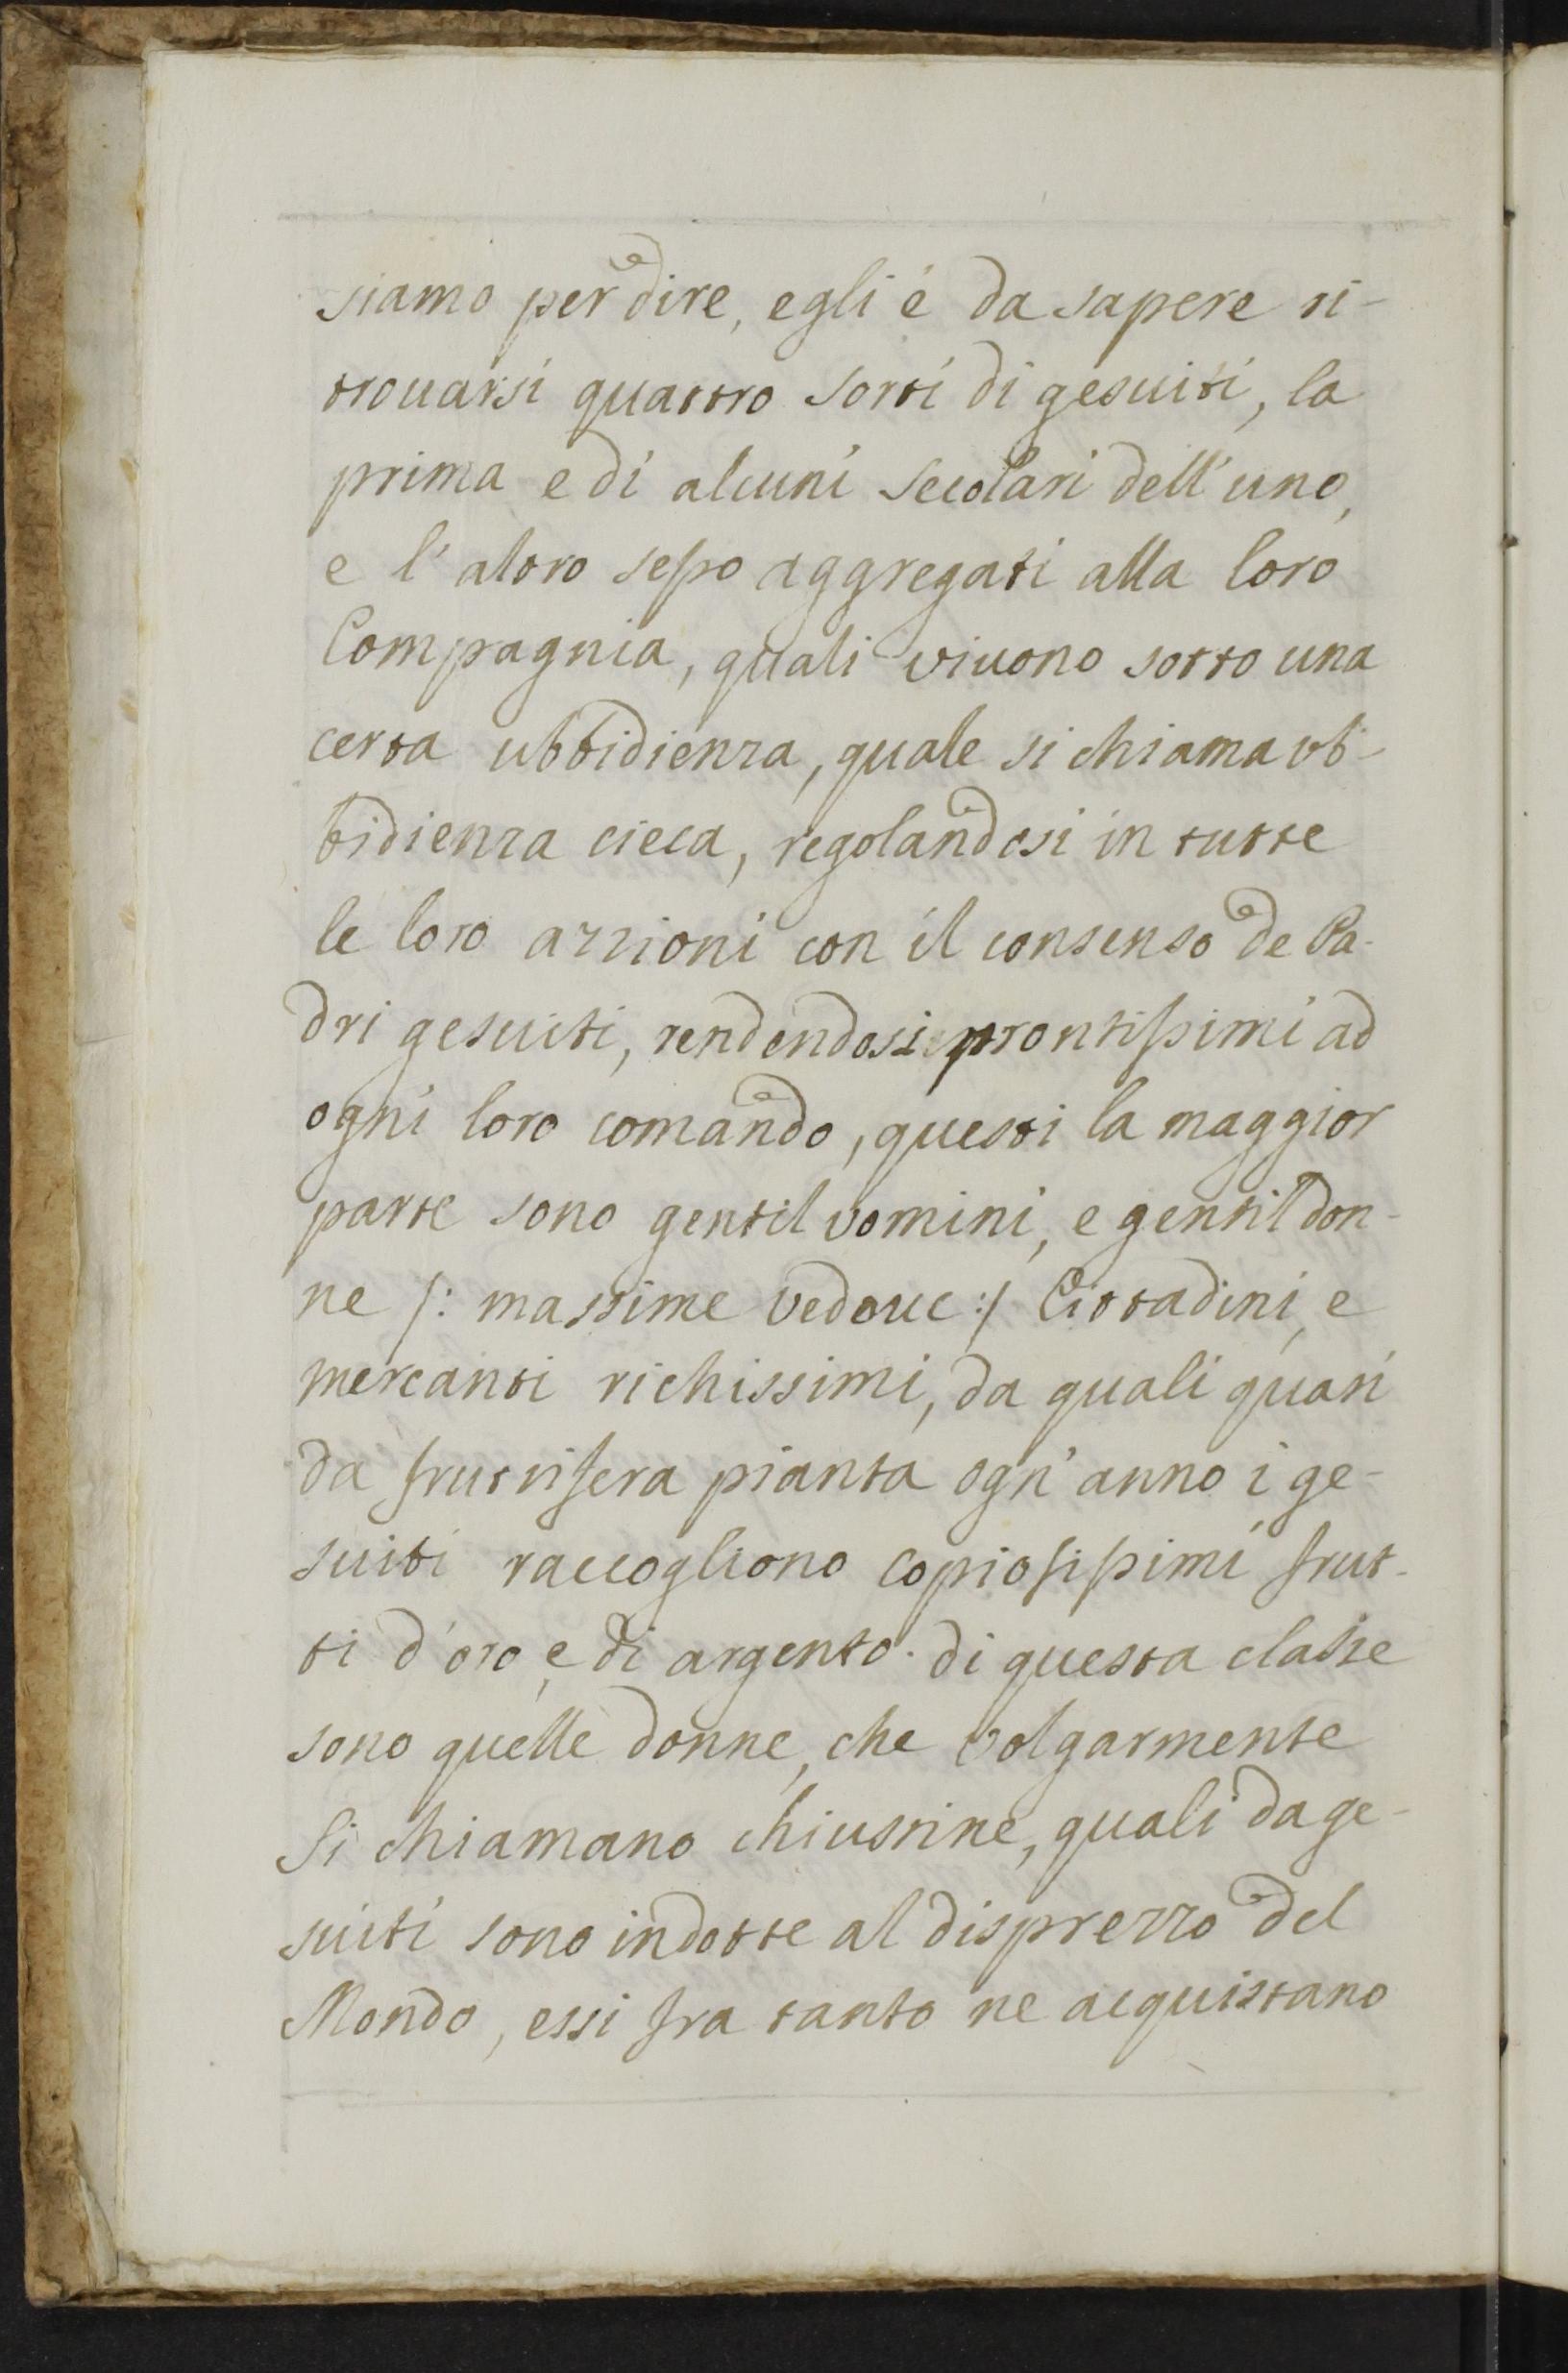 siamo per dire, egli é da sapere ri-
trouarsi quattro sorti di gesuiti, la
prima e di alcuni secolari dell'uno,
e l'altro sesso aggregati alla loro
Compagnia, quali viuono sotto una
certa ubbidienza, quale si chiama vb-
bidienza cieca, regolandosi in tutte
le loro azzioni con il consenso de Pa-
dri gesuiti, rendendosi prontissimi ad
ogni loro comando, questi la maggior
parte sono gentil vomini, e gentil don-
ne /: massime vedoue :/ Cittadini, e
mercanti richissimi, da quali quasi
da fruttifera pianta ogn'anno i ge-
suiti raccogliono copiosissimi frut-
ti d'oro, e di argento. di questa classe
sono quelle donne, che volgarmente
si chiamano chiustine, quali da ge-
suiti sono indotte al disprezzo del
Mondo, essi fra tanto ne acquistano